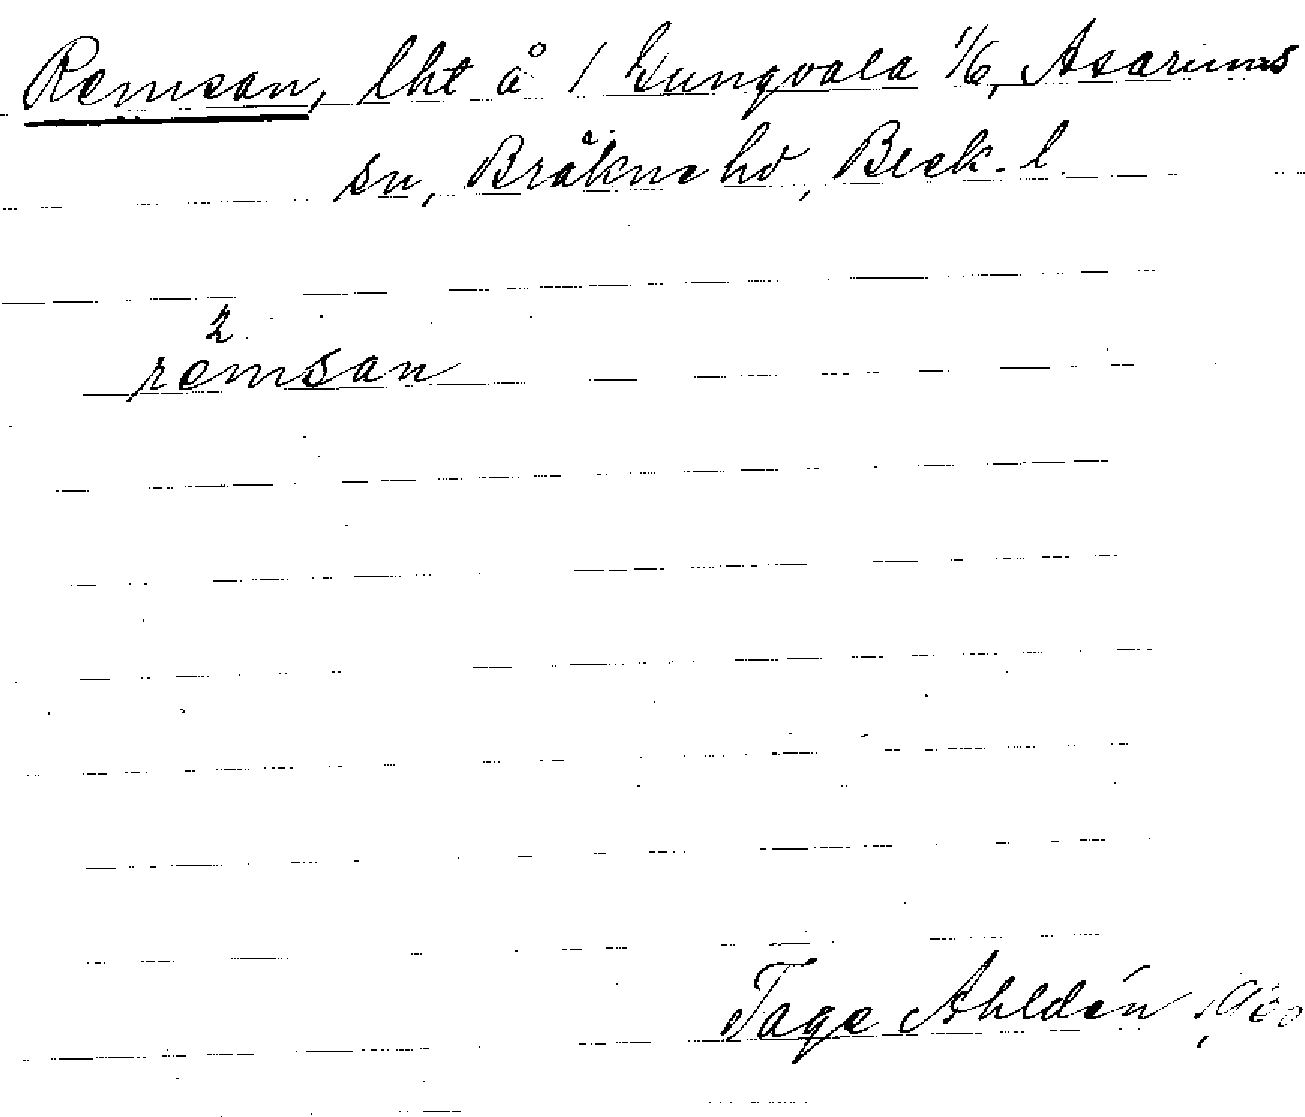 Remsan, lht å 1 Gungvala 1/6, Asarums
sn, Bräkne hd, Blek. l.
2
remsan
Tage Ahldén 1960